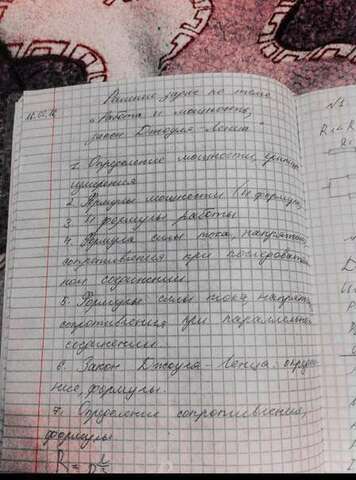 Решение задач по теме
"Работа и мощность,
закон Джоуля-Ленца"
1. Определение мощности, единицы
измерения
2. Формулы мощности
3. формулы работы
4. Формула силы тока, напряжен
сопротивления при последовател
ном соединении.
5. Формулы силы тока, напряж
сопротивления при параллельном
соединении.
6. Закон Джоуля-Ленца: опреде
ние, формулы.
7. Определение сопротивления,
формулы
R =
N1